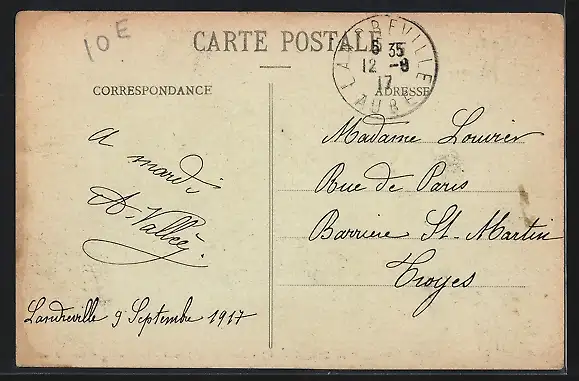 10E
CARTE POSTALE
LANDREVILLE
6 35
12 -9
17
AUBE
CORRESPONDANCE
ADRESSE
A mardi
A. Vallrey.
Landreville 9 Septembre 1917
Madame Louvrier
Rue de Paris
Barrière St. Martin
Troyes